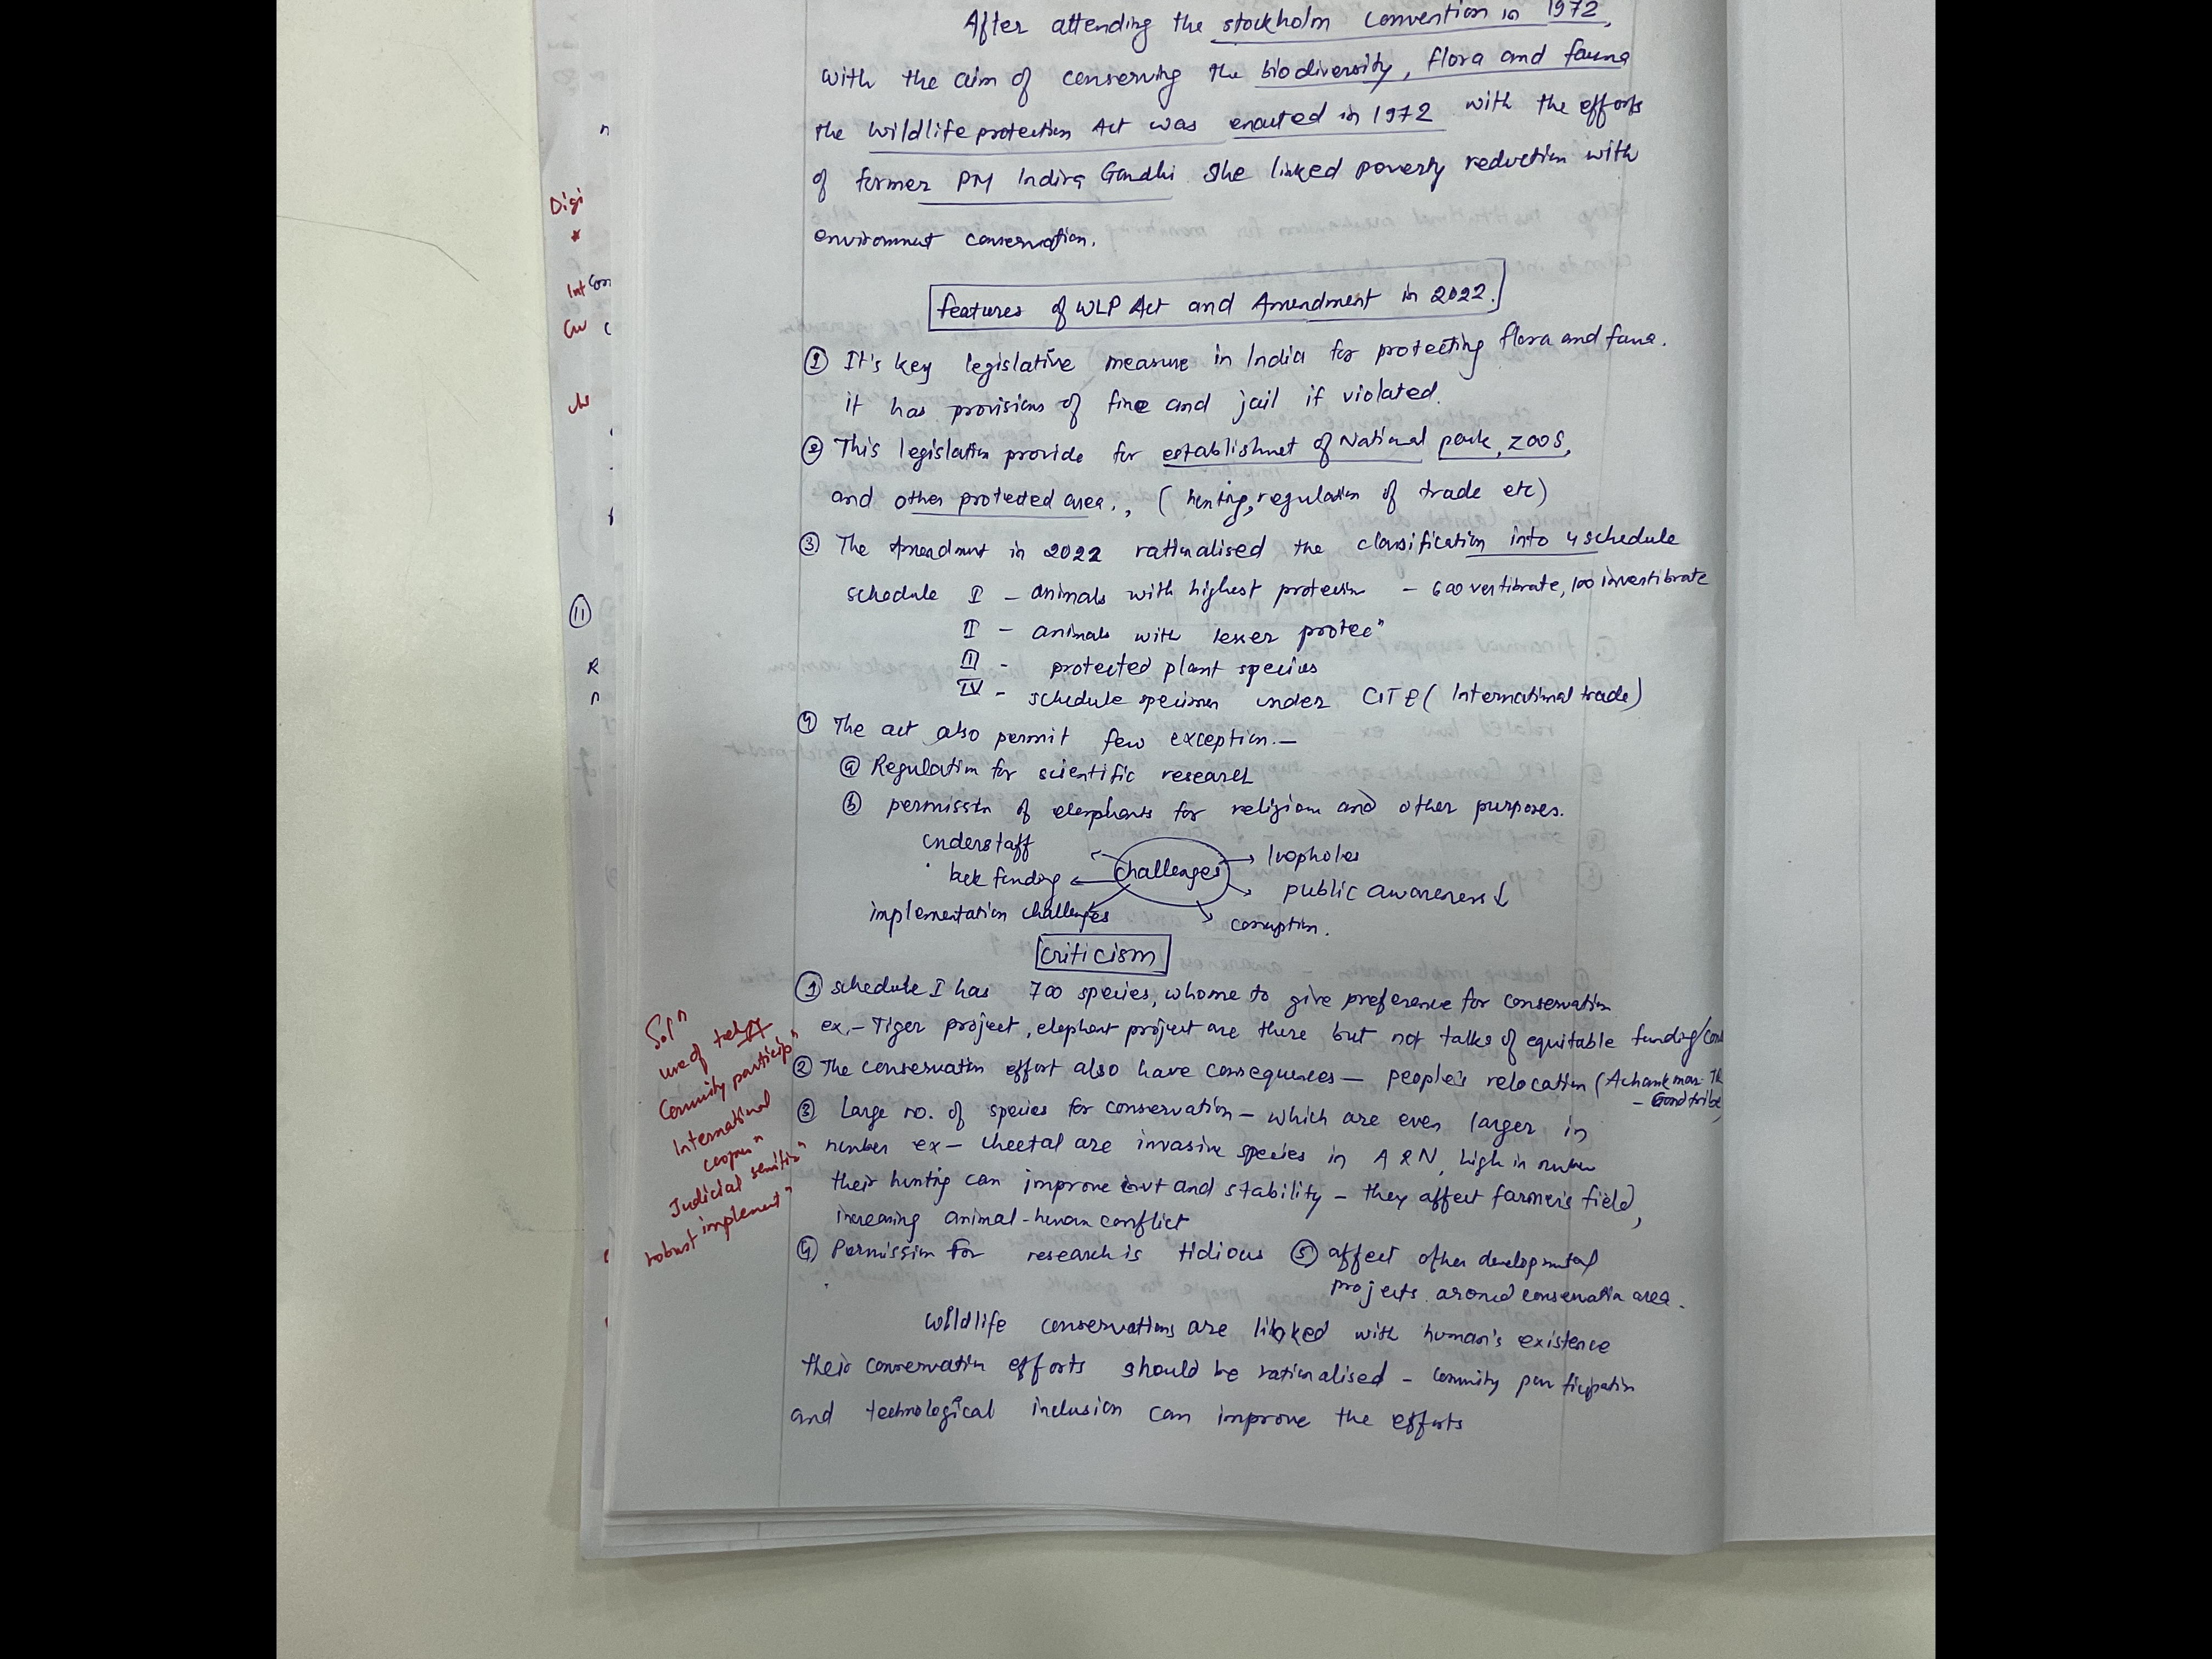 After attending the stockholm convention in 1972,
with the aim of conserving the biodiversity, flora and fauna
the wildlife protection Act was enacted in 1972 with the efforts
of former PM Indira Gandhi. She linked poverty reduction with
environment conservation.
features of WLP Act and Amendment in 2022.
① It's key legislative measure in India for protecting flora and fauna.
it has provisions of fine and jail if violated.
② This legislation provide for establishment of National park, zoos,
and other protected area., ( hunting, regulation of trade etc)
③ The Amendment in 2022 rationalised the classification into 4 schedule
schedule I – animals with highest protection – 600 vertibrate, 100 invertibrate
II – animals with lesser protecⁿ
III – protected plant species
IV – schedule specimen under CITE ( International trade)
④ The act also permit few exception.—
ⓐ Regulation for scientific research
ⓑ permission of elephants for religion and other purposes.
understaff
lack funding
implementation challenges
challenges
loopholes
public awareness ↓
corruption.
criticism
① schedule I has 700 species, whome to give preference for conservation
ex.– Tiger project, elephant project are there but not talks of equitable funding/
② The conservation effort also have consequences — people's relocation (Achankmar
– Gond tribe)
③ Large no. of species for conservation – which are even larger in
number ex – cheetal are invasive species in A & N, high in number
their hunting can improve envt and stability – they affect farmer's field,
increasing animal-human conflict
④ Permission for research is tidious ⑤ affect other developmental
projects around conservation area.
wildlife conservations are linked with human's existence
their conservation efforts should be rationalised – comunity participation
and technological inclusion can improve the efforts
Solⁿ
use of
Comunity participⁿ
International
coopnⁿ
Judicial
robust implementⁿ
Digi
⑪
R